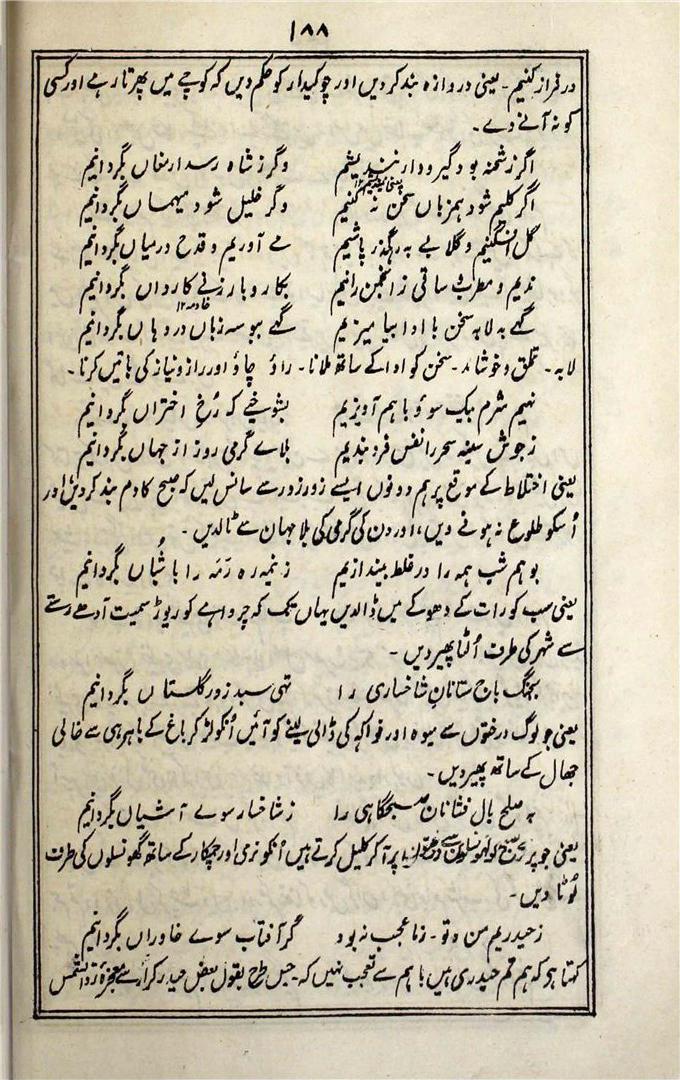 ۱۸۸
در فراز کنیم - یعنی دروازہ بند کر دیں اور چوکیدار کو حکم دیں کہ کوچے میں پھرتا رہے اور کسی
کو نہ آنے دے۔
اگر ز شحنہ بود گیر و دار نندیشیم وگر ز شاہ رسد ارمغاں بگردانیم
اگر کلیم شود ہمزباں سخن نہ کنیم وگر خلیل شود میہماں بگردانیم
گل افگنیم و گلابے بہ رہگذر پاشیم مے آوریم و قدح درمیاں بگردانیم
ندیم و مطرب و ساقی ز انجمن رانیم بکار و بار زنے کارداں بگردانیم
خادمہ ۱۲
گہے بہ لابہ سخن با ادا بیامیزیم گہے ببوسہ زباں در دہاں بگردانیم
لابہ - تملق و خوشامد - سخن کو ادا کے ساتھ ملانا - راؤ چاؤ اور راز و نیاز کی باتیں کرنا۔
نہیم شرم بیک سو و باہم آویزیم بشوخیے کہ رُخِ اختراں بگردانیم
ز جوش سینہ سحر را نفس فرو بندیم بلاے گرمی روز از جہاں بگردانیم
یعنی اختلاط کے موقع پر ہم دونوں ایسے زور زور سے سانس لیں کہ صبح کا دم بند کر دیں اور
اُسکو طلوع نہ ہونے دیں، اور دن کی گرمی کی بلا جہان سے ٹالدیں۔
بوہم شب ہمہ را در غلط بیندازیم ز نیمہ رہ رمہ را با شُباں بگردانیم
یعنی سب کو رات کے دھوکے میں ڈالدیں یہاں تک کہ چرواہے کو ریوڑ سمیت آدھے رستے
سے شہر کی طرف اُلٹا پھیر دیں۔
بجنگ باج ستانانِ شاخساری را تہی سبد ز در گلستاں بگردانیم
یعنی جو لوگ درختوں سے میوہ اور فواکہ کی ڈالی لینے کو آئیں اُنکو لڑکر باغ کے باہر ہی سے خالی
جھال کے ساتھ پھیر دیں۔
بہ صلح بال فشانان صبحگاہی را ز شاخسار سوے آشیاں بگردانیم
یعنی جو پرند صبح کو گھونسلوں سے درختوں پر آکر کلیل کرتے ہیں اُنکو نرمی اور چمکار کے ساتھ گھونسلوں کی طرف
لوٹا دیں۔
ز حیدریم من و تو - ز ما عجب نبود گر آفتاب سوے خاوراں بگردانیم
کہتا ہو کہ ہم تم حیدری ہیں ہم سے تعجب نہیں کہ جس طرح بقول بعض حیدر کرار سے معجزۂ ردّ الشمس